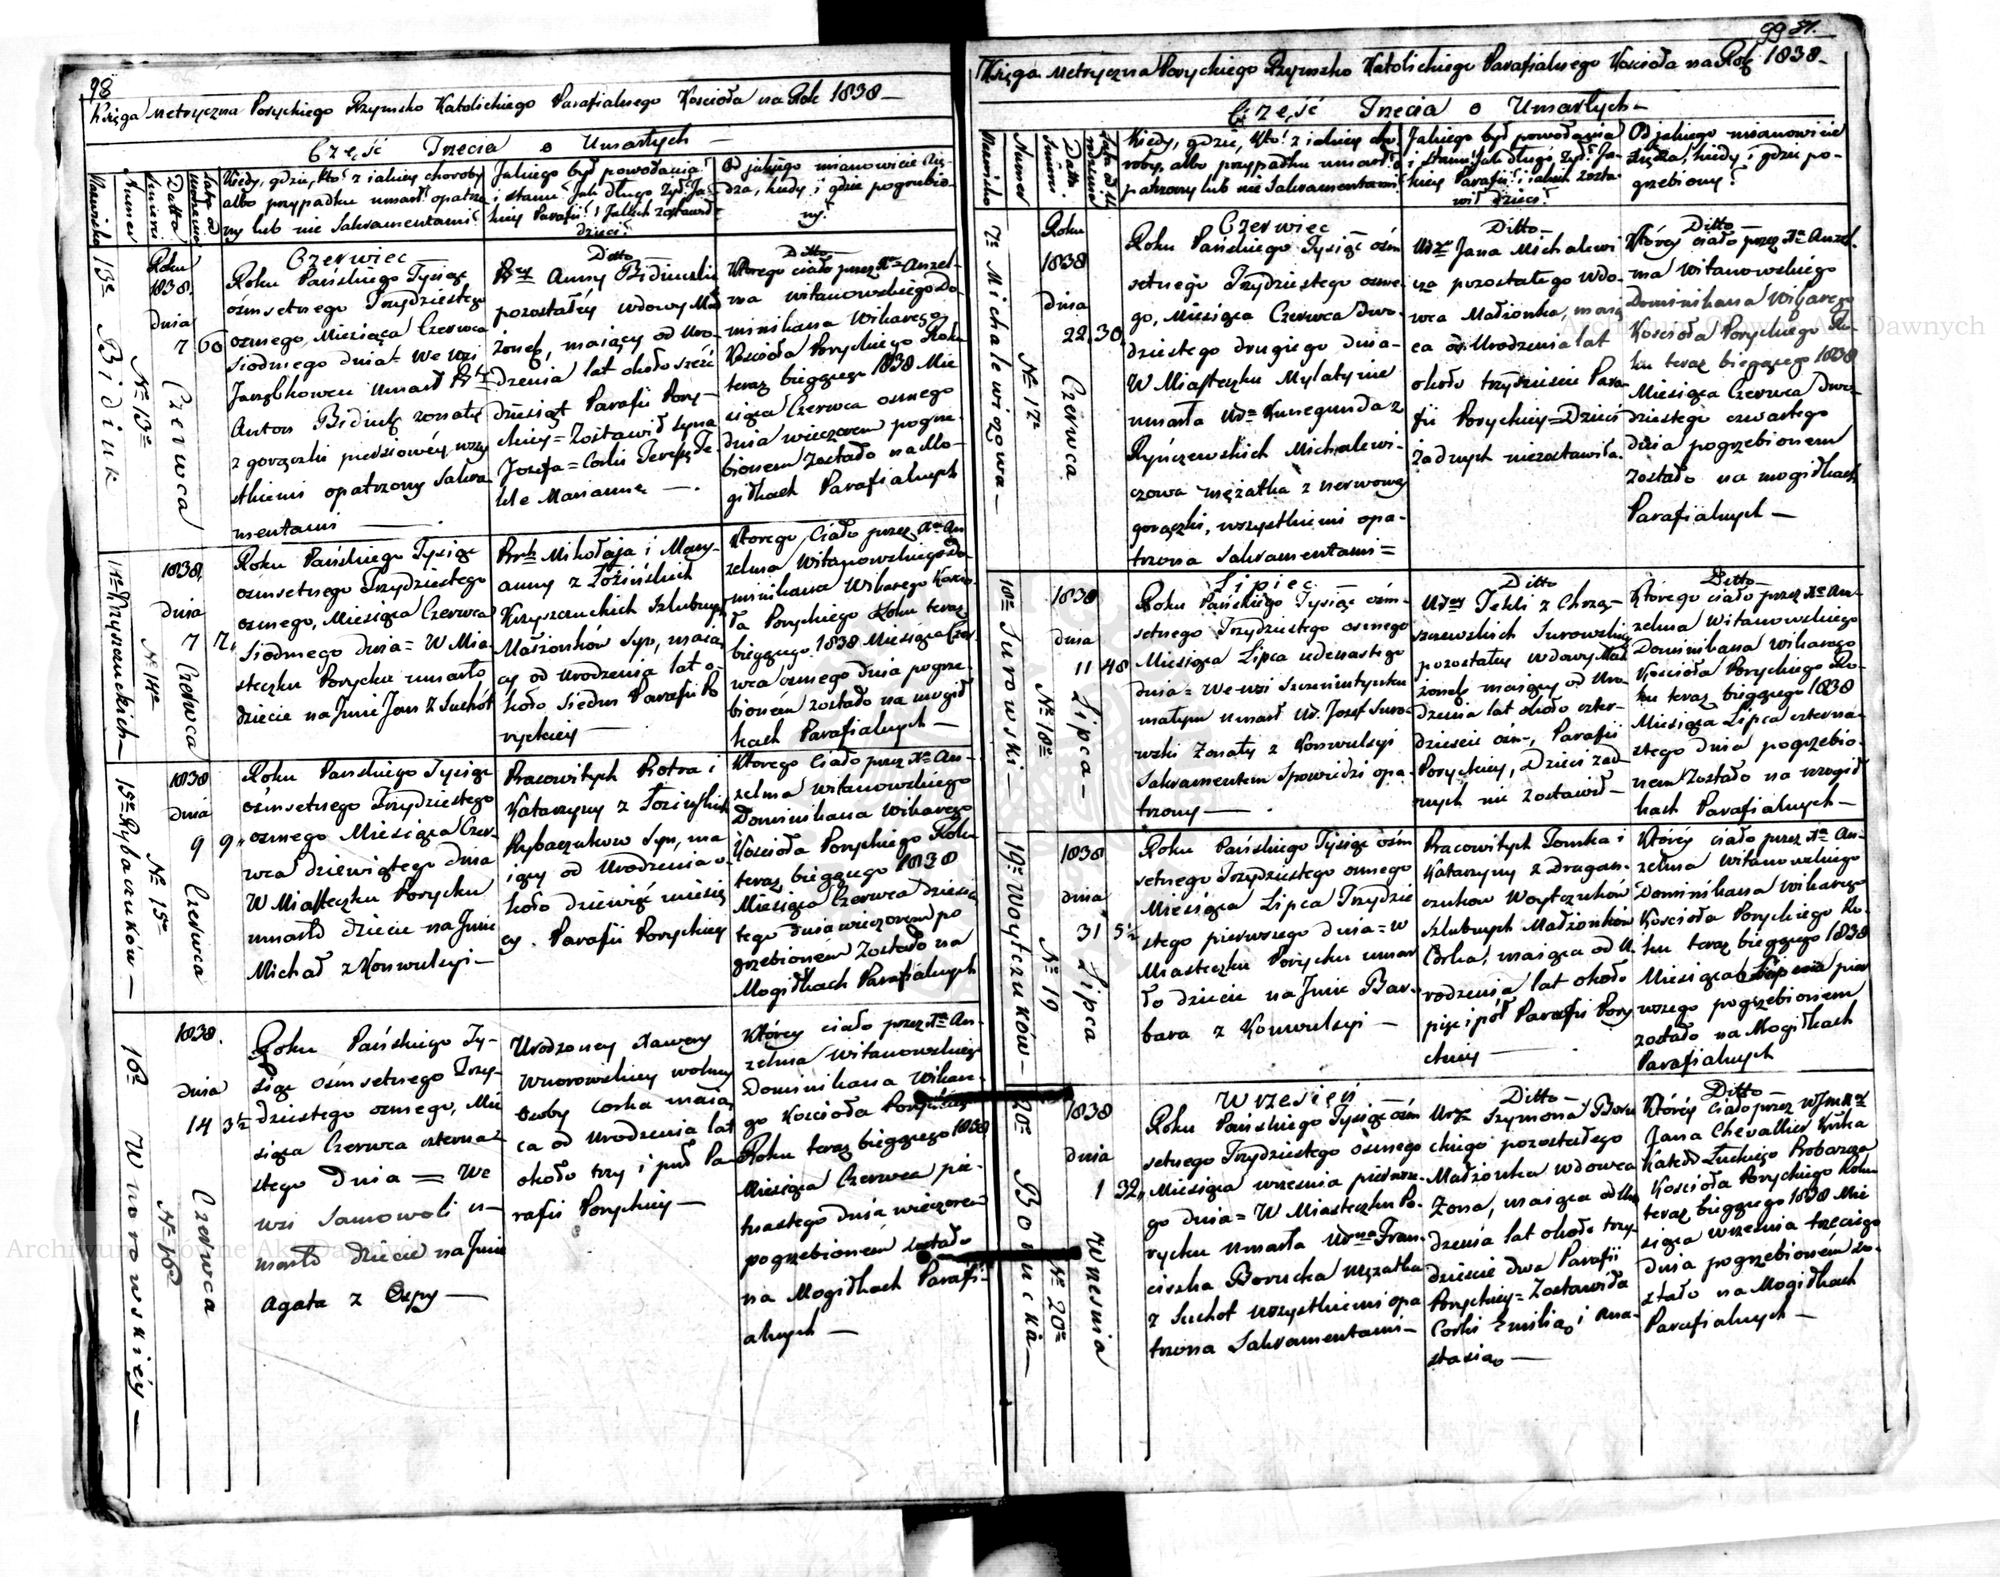 98
Księga Metryczna Poryckiego Rzymsko Katolickiego Parafialnego Kościoła na Rok 1838 —
Część Trzecia o Umarłych —
Nazwisko
Numer
Datta Śmierci
Kiedy, gdzie, kto? z iakiey choroby
albo przypadku umarł? opatrzo-
ny lub nie Sakramentami?
Jakiego był powołania?
i stanu? Jak długo żył? Ja-
kiey Parafii? i Jakich zostawił
dzieci?
Od jakiego mianowicie Xię-
dza, kiedy i gdzie pogrzebio-
ny?
13e Bidiuk
N° 13e
Roku
1838.
dnia
7
60
Czerwca
Czerwiec
Roku Pańskiego Tysiąc
ośmsetnego Trzydziestego
osmego, Miesiąca Czerwca
Siodmego dnia = We wsi
umarł
Anton Bidiuk żonaty
z gorączki piersiowéy wszy
stkiemi opatrzony Sakra
mentami —
Ditto
Anny
pozostałéy wdowy Mał
żonek, maiący od Uro-
dzenia lat około sześć
dziesiąt Parafii Pory-
ckiey = Zostawił syna
Jozefa = Corki Teressę Te
klę Mariannę —
Ditto
Ktorego ciało przez Xa Anzel-
ma Witanowskiego Do-
minikana Wikarego
Kościoła Poryckiego Roku
teraz bieżącego 1838 Mie
siąca Czerwca osmego
dnia wieczorem pogrze-
bionem Zostało na Mo-
giłkach Parafialnych
N° 14e
1838.
dnia
7
7.
Czerwca
Roku Pańskiego Tysiąc
ośmsetnego Trzydziestego
osmego, Miesiąca Czerwca
Siodmego dnia = W Mia
steczku Porycku umarło
dziecie na Imie Jan z Suchót
Mikołaja i Mary-
anny z Łozińskich
Krzyszczuckich Szlubnych
Małżonków Syn, maia
cy od Urodzenia lat o-
koło Siedm Parafii Po
ryckiey —
Ktorego Ciało przez Xa An
zelma Witanowskiego Do-
minikana Wikarego Kościo
ła Poryckiego Roku teraz
bieżącego 1838 Miesiąca Czer
wca osmego dnia pogrze-
bioném zostało na mogił
kach Parafialnych —
15e Rybaczuków —
N° 15e
1838
dnia
9
9.
Czerwca
Roku Pańskiego Tysiąc
ośmsetnego Trzydziestego
osmego Miesiąca Czer-
wca dziewiątego dnia
W Miasteczku Porycku
umarło dziecie na Imie
Michał z Konwulsyi —
Pracowitych Piotra i
Katarzyny z Łozińskich
Rybaczukow Syn, ma
iący od Urodzenia o-
koło dziewięć miesię
cy. Parafii Poryckiey
Ktorego Ciało przez Xa An-
zelma Witanowskiego
Dominikana Wikarego
Kościoła Poryckiego Roku
teraz bieżącego 1838
Miesiąca Czerwca dziesią
tego dnia wieczorem po
grzebioném Zostało na
Mogiłkach Parafialnych
16e Wnorowskiéy —
N° 16e
1838.
dnia
14
3½
Czerwca
Roku Pańskiego Ty-
siąc ośmsetnego Trzy-
dziestego osmego, Mie
siąca Czerwca czterna-
stego Dnia = We
wsi Samowoli u-
marło dziecie na Imie
Agata z Ospy —
Urodzoney Xawery
Wnorowskiey wolney
osoby Corka maią
ca od Urodzenia lat
około trzy i puł Pa-
rafii Poryckiey —
Którey ciało przez Xa An-
zelma Witanowskiego
Dominikana Wikare-
go Kościoła Poryckiego
Roku teraz bieżącego 1838
Miesiąca Czerwca pie-
tnastego dnia wieczorem
pogrzebioném zostało
na Mogiłkach Parafi-
alnych —
99
Księga Metryczna Poryckiego Rzymsko Katolickiego Parafialnego Kościoła na Rok 1838 —
Część Trzecia o Umarłych —
Nazwisko
Numer
Datta Śmierci
Kiedy, gdzie, kto? z iakiey cho-
roby, albo przypadku umarł? o
patrzony lub nie Sakramentami
Jakiego był powołania
i stanu? Jak długo żył? Ja-
kiey Parafii? i iakich zosta-
wił dzieci?
Od jakiego mianowicie
Xiędza? kiedy i gdzie po-
grzebiony?
17e Michalewiczowa —
N° 17e
Roku
1838
dnia
22.
30.
Czerwca
Czerwiec —
Roku Pańskiego Tysiąc ośm
setnego Trzydziestego osme-
go, Miesiąca Czerwca Dwu-
dziestego drugiego dnia —
W Miasteczku Mylatynie
umarła Kunegunda z
Michalewi-
czowa mężatka z nerwowey
gorączki, wszystkiemi opa-
trzona Sakramentami =
Ditto —
Jana Michalewi
cza pozostałego wdo-
wca Małżonka, maią
ca od Urodzenia lat
około trzydzieści Para-
fii Poryckiey = Dzieci
żadnych niezostawiła.
Ditto —
Którey ciało przez Xa Anzel-
ma Witanowskiego
Dominikana Wikarego
Kościoła Poryckiego Ro-
ku teraz bieżącego 1838
Miesiąca Czerwca dwu-
dziestego czwartego
dnia pogrzebionem
Zostało na mogiłkach
Parafialnych —
18e Surowski —
N° 18e
1838
dnia
11
48
Lipca —
Lipiec —
Roku Pańskiego Tysiąc ośm-
setnego Trzydziestego osmego
Miesiąca Lipca iedenastego
dnia = We wsi
małym umarł Ur. Jozef Suro-
wski Żonaty z Konwulsyi
Sakramentem Spowiedzi opa-
trzony —
Ditto
Tekli z Chrzą-
szczewskich Surowskiey
pozostałey wdowy Mał
żonek maiący od Uro
dzenia lat około czter-
dzieści ośm, Parafii
Poryckiey, Dzieci żad
nych nie zostawił —
Ditto —
Ktorego ciało przez Xa An-
zelma Witanowskiego
Dominikana Wikarego
Kościoła Poryckiego Ro-
ku teraz bieżącego 1838
Miesiąca Lipca czterna-
stego dnia pogrzebio-
nem Zostało na mogił
kach Parafialnych —
19e Woytczuków —
N° 19
1838
dnia
31
5½
Lipca
Roku Pańskiego Tysiąc ośm
setnego Trzydziestego osmego
Miesiąca Lipca Trzydzie
stego pierwszego dnia = w
Miasteczku Porycku umar
ło dziecie na Imie Bar-
bara z Konwulsyi —
Pracowitych Tomka i
Katarzyny z Dragan-
czukow Woytczukow
Szlubnych Małżonkow
Corka, maiąca od U
rodzenia lat około
pięć i pół Parafii Pory
ckiey —
Którey ciało przez Xa An-
zelma Witanowskiego
Dominikana Wikarego
Kościoła Poryckiego Ro-
ku teraz bieżącego 1838
Miesiąca Sierpnia pier
wszego pogrzebionem
zostało na Mogiłkach
Parafialnych
20e Borucka —
N° 20e
1838
dnia
1
32.
Wrzesnia
Wrzesień —
Roku Pańskiego Tysiąc ośm
setnego Trzydziestego osmego
Miesiąca wrzesnia pierwsze-
go dnia = W Miasteczku Po-
rycku umarła Fran-
ciszka Borucka mężatka
z Suchot wszystkiemi opa
trzona Sakramentami —
Ditto —
Szymona Boru
ckiego pozostałego
Małżonka wdowca
Żona, maiąca od Uro
dzenia lat około trzy-
dzieście dwa Parafii
Poryckiey = Zostawiła
Corki Emilią i Ana-
stasią —
Ditto —
Którey Ciało przez
Jana Chevallier
Łuckiego Proboszcza
Kościoła Poryckiego Roku
teraz bieżącego 1838 Mie
siąca wrzesnia trzeciego
dnia pogrzebioném zo-
stało na Mogiłkach
Parafialnych —
Archiwum Główne Akt Dawnych
Archiwum Główne Akt Dawnych